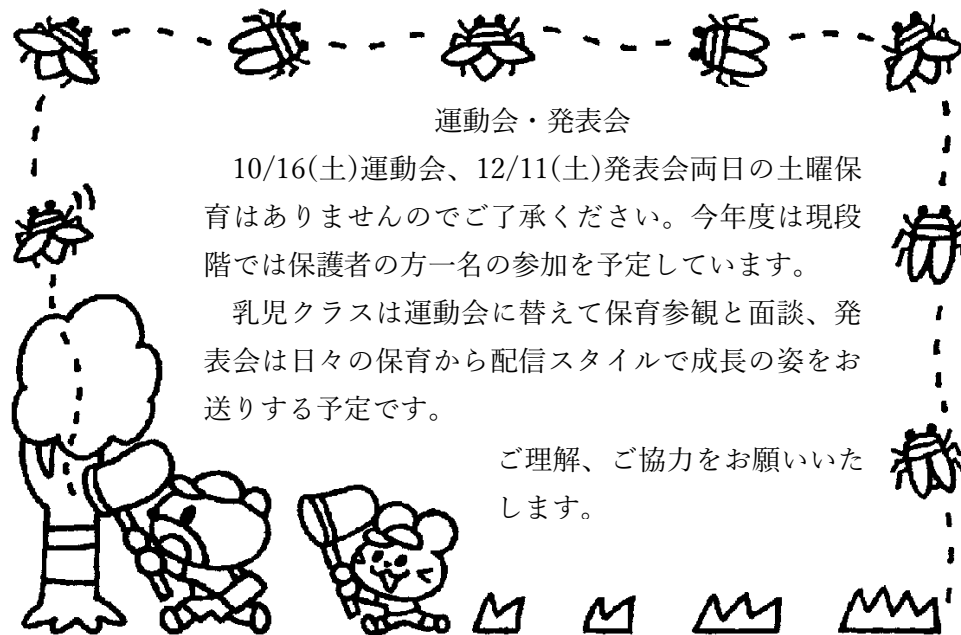 運動会・発表会
10/16(土)運動会、12/11(土)発表会両日の土曜保
育はありませんのでご了承ください。今年度は現段
階では保護者の方一名の参加を予定しています。
乳児クラスは運動会に替えて保育参観と面談、発
表会は日々の保育から配信スタイルで成長の姿をお
送りする予定です。
ご理解、ご協力をお願いいた
します。